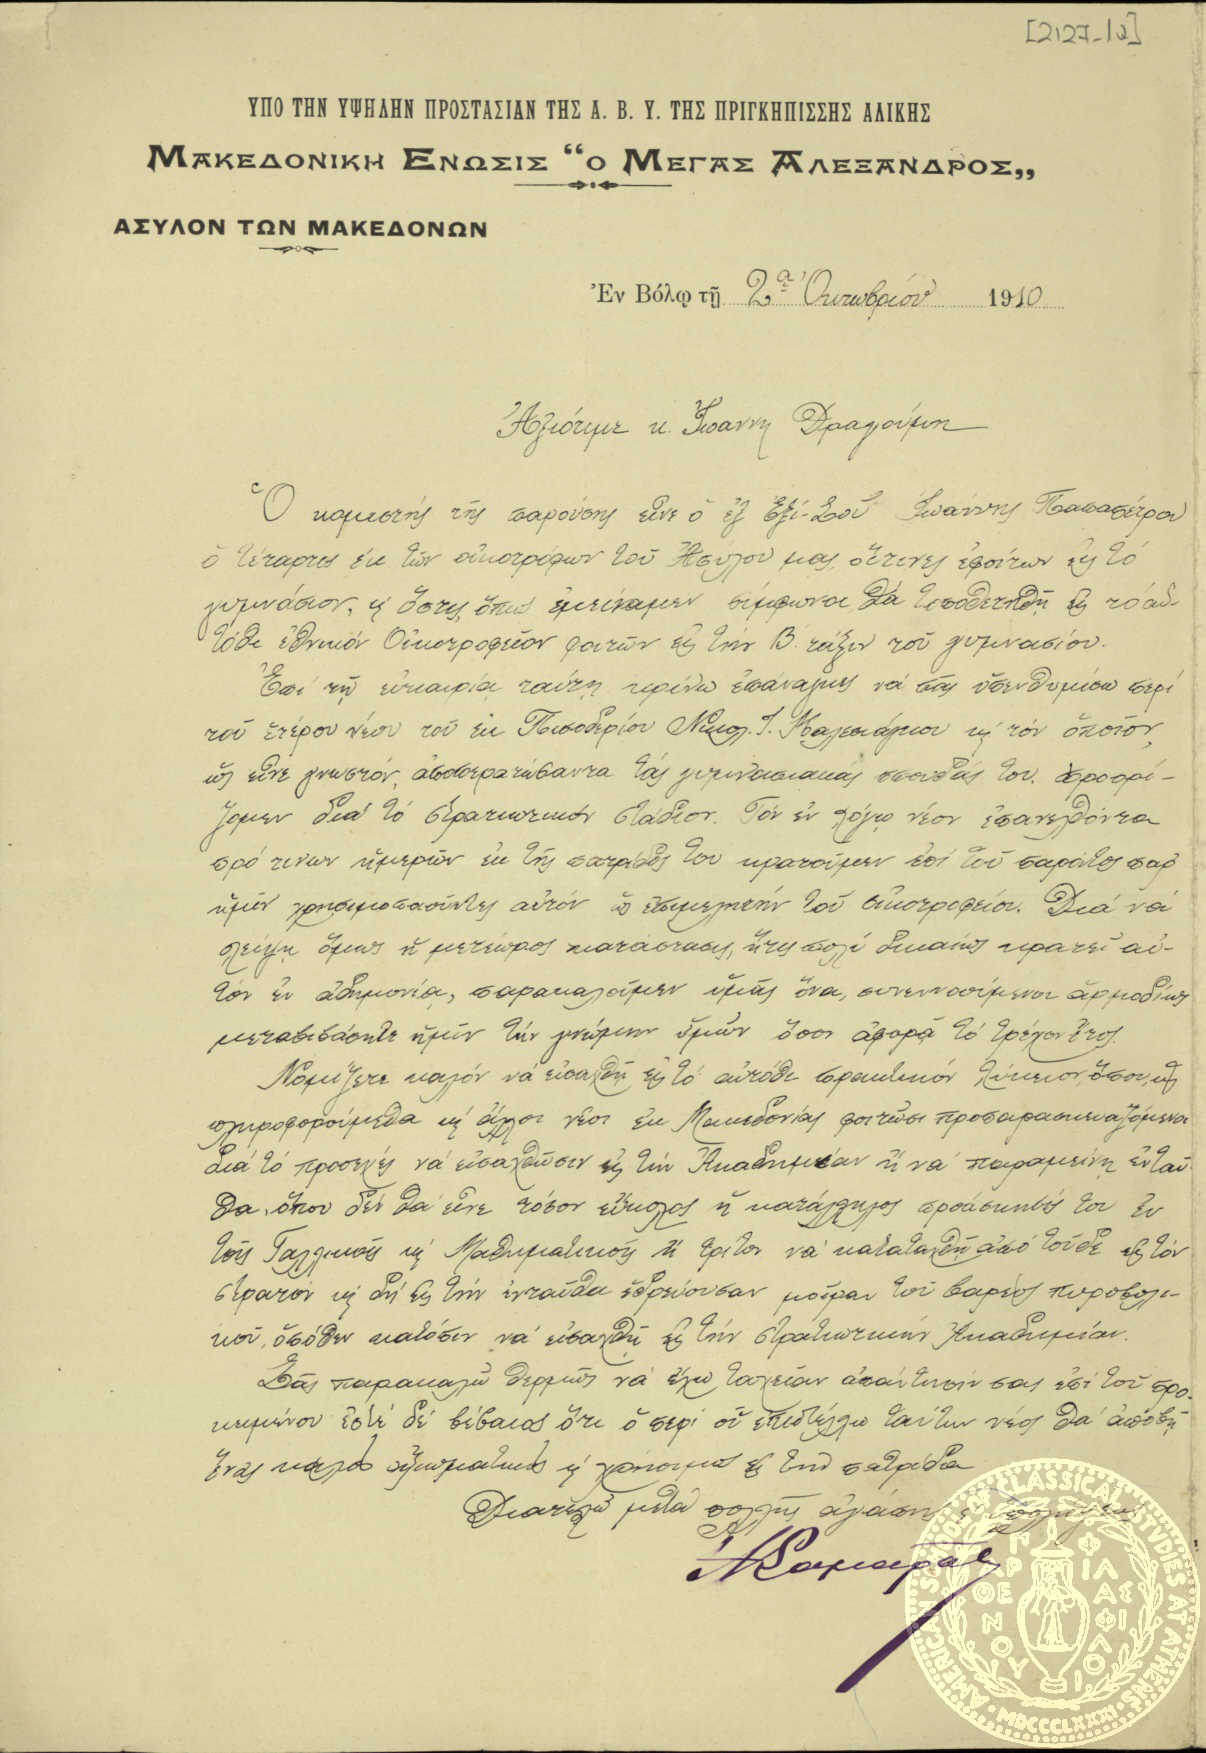 [2127-12]
ΥΠΟ ΤΗΝ ΥΨΗΛΗΝ ΠΡΟΣΤΑΣΙΑΝ ΤΗΣ Α. Β. Υ. ΤΗΣ ΠΡΙΓΚΗΠΙΣΣΗΣ ΑΛΙΚΗΣ
ΜΑΚΕΔΟΝΙΚΗ ΕΝΩΣΙΣ “Ο ΜΕΓΑΣ ΑΛΕΞΑΝΔΡΟΣ„
ΑΣΥΛΟΝ ΤΩΝ ΜΑΚΕΔΟΝΩΝ
Ἐν Βόλῳ τῇ 2ᾳ Ὀκτωβρίου 1910
Ἀξιότιμε κ. Ἰωάννη Δραγούμη
Ὁ κομιστής τῆς παρούσης εἶνε ὁ ἐξ Ἐξί-Σοῦ Ἰωάννης Παπαπέτρου
ὁ τέταρτος ἐκ τῶν οἰκοτρόφων τοῦ Ἀσύλου μας, οἵτινες ἐφοίτων εἰς τό
γυμνάσιον, κ' ὅστις, ὅπως ἐμείναμεν σύμφωνοι θά τοποθετηθῇ εἰς τό αὐ-
τόθι ἐθνικόν Οἰκοτροφεῖον φοιτῶν εἰς τήν Β. τάξιν τοῦ γυμνασίου.
Ἐπί τῇ εὐκαιρίᾳ ταύτῃ κρίνω ἐπάναγκες νά σᾶς ὑπενθυμίσω περί
τοῦ ἑτέρου νέου τοῦ ἐκ Πισοδερίου Νικολ. Ι. κ' τόν ὁποῖον,
ὡς εἶνε γνωστόν, ἀποπερατώσαντα τάς γυμνασιακάς σπουδάς του, προορί-
ζομεν διά τό στρατιωτικόν στάδιον. Τόν ἐν λόγῳ νέον ἐπανελθόντα
πρό τινων ἡμερῶν ἐκ τῆς πατρίδος του κρατοῦμεν ἐπί τοῦ παρόντος παρ'
ἡμῖν χρησιμοποιοῦντες αὐτόν ὡς ἐπιμελητήν τοῦ οἰκοτροφείου. Διά νά
λείψῃ ὅμως ἡ μετέωρος κατάστασις, ἥτις πολύ δικαίως κρατεῖ αὐ-
τόν ἐν ἀδημονίᾳ, παρακαλοῦμεν ὑμᾶς ἵνα, συνεννοούμενοι ἁρμοδίως
μεταβιβάσητε ἡμῖν τήν γνώμην ὑμῶν ὅσον ἀφορᾷ τό τρέχον ἔτος.
Νομίζετε καλόν νά εἰσαχθῇ εἰς τό αὐτόθι πρακτικόν λύκειον, ὅπου, ὡς
πληροφορούμεθα κ' ἄλλοι νέοι ἐκ Μακεδονίας φοιτῶσι προπαρασκευαζόμενοι
διά τό προσεχές νά εἰσαχθῶσιν εἰς τήν Ἀκαδημίαν ἤ νά παραμείνῃ ἐνταῦ-
θα, ὅπου δέν θά εἶνε τόσον εὔκολος ἡ κατάλληλος προάσκησίς του ἐν
τοῖς Γαλλικοῖς κ' Μαθηματικοῖς ἤ τρίτον νά καταταχθῇ ἀπό τοῦδε εἰς τόν
στρατόν κ' δή εἰς τήν ἐνταῦθα ἑδρεύουσαν μοῖραν τοῦ βαρέος πυροβολι-
κοῦ, ὁπόθεν κατόπιν νά εἰσαχθῇ εἰς τήν στρατιωτικήν Ἀκαδημίαν.
Σᾶς παρακαλῶ θερμῶς νά ἔχω ταχεῖαν ἀπάντησίν σας ἐπί τοῦ προ-
κειμένου ἔστέ δέ βέβαιος ὅτι ὁ περί οὗ ἐπιστέλλω ταύτην νέος θά ἀποβῇ
ἕνας καλός ἀξιωματικός κ' χρήσιμος εἰς τήν πατρίδα
Διατελῶ μετά πολλῆς ἀγάπης κ' ὑπολήψεως
AMERICAN SCHOOL OF CLASSICAL STUDIES AT ATHENS
ΠΑΡΘΕΝΟΥ ΦΙΛΑΣ ΦΙΛΟΙ
MDCCCLXXXI